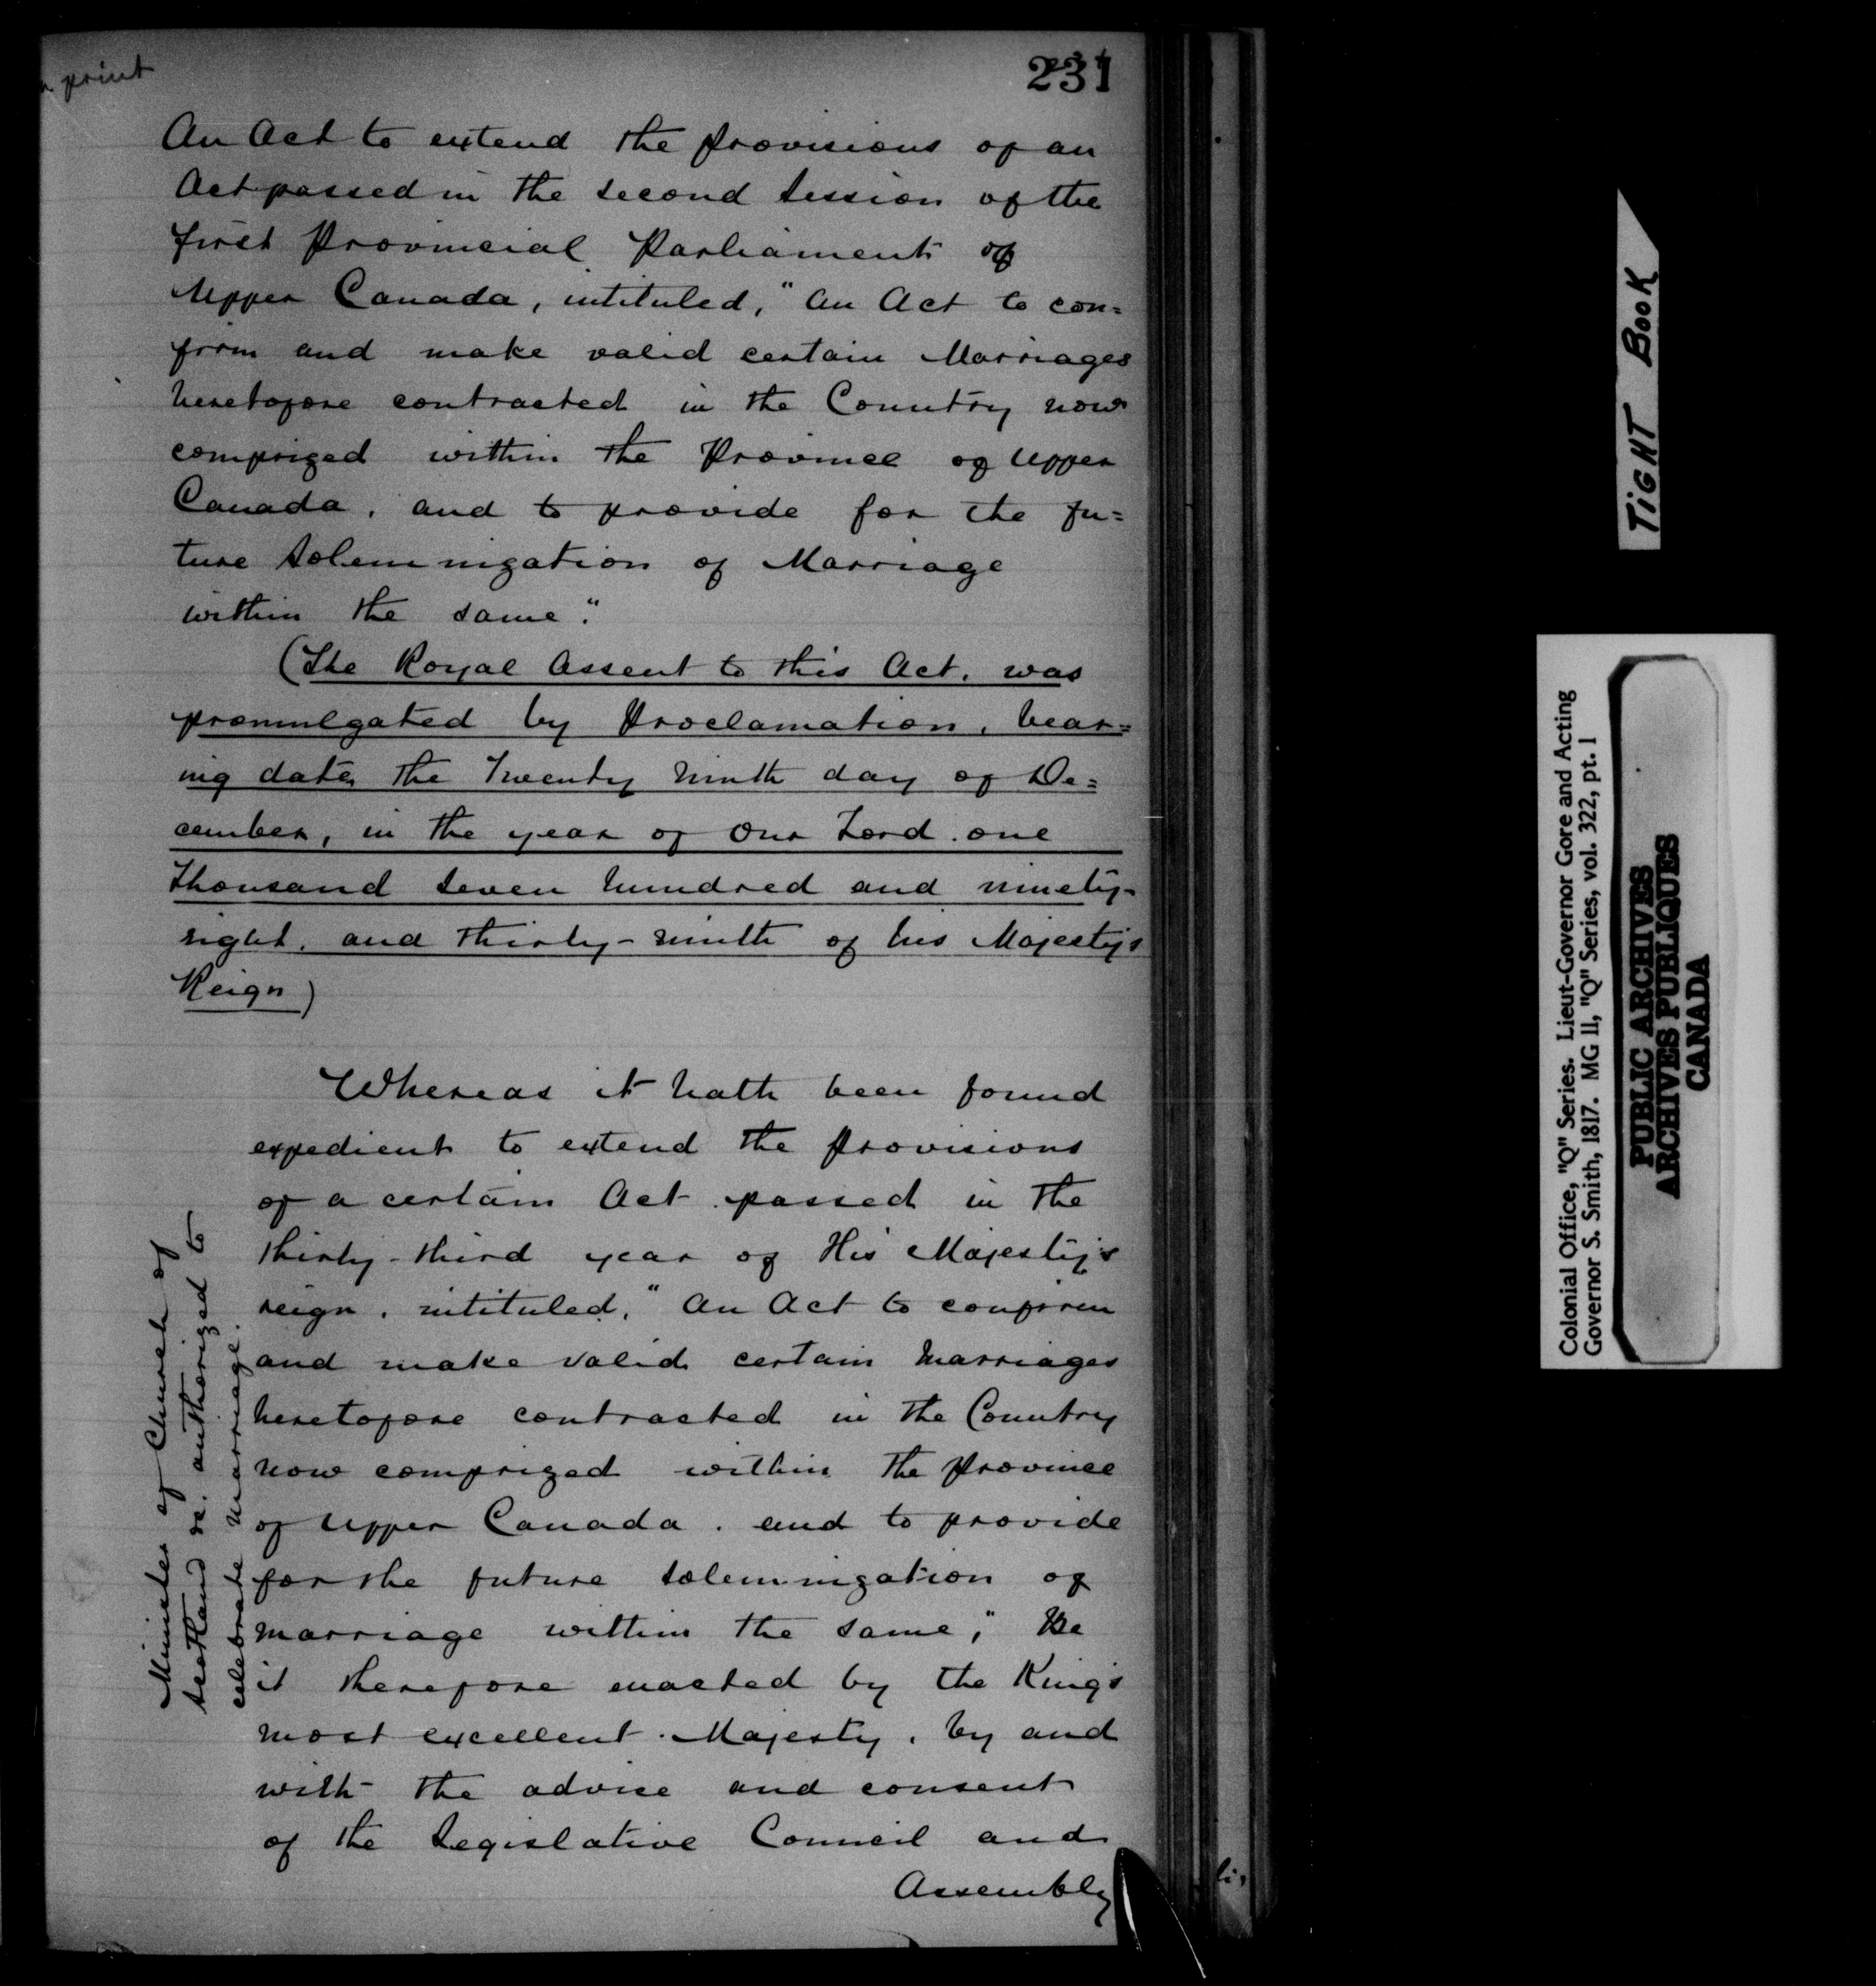 print
231
An Act to extend the provisions of an
Act passed in the second Session of the
first Provincial Parliament of
Upper Canada, intituled, "An Act to con=
firm and make valid certain Marriages
heretofore contracted in the Country now
comprized within the Province of Upper
Canada, and to provide for the fu=
ture Solemnization of Marriage
within the same".
(The Royal Assent to this Act, was
promulgated by Proclamation, bear=
ing date, the Twenty Ninth day of De=
cember, in the year of Our Lord one
thousand Seven hundred and ninety-
eight, and thirty-ninth of his Majesty's
Reign)
Whereas it hath been found
expedient to extend the provisions
of a certain Act passed in the
thirty-third year of His Majesty's
reign, intituled, "An Act to confirm
and make valid certain marriages
heretofore contracted in the Country
now comprized within the Province
of Upper Canada, and to provide
for the future solemnization of
marriage within the same," Be
it therefore enacted by the King's
most excellent Majesty, by and
with the advice and consent
of the Legislative Council and
Assembly
Minister of Church of
Scotland &c. authorized to
celebrate marriage.
TIGHT BOOK
Colonial Office, "Q" Series. Lieut-Governor Gore and Acting
Governor S. Smith, 1817. MG 11, "Q" Series, vol. 322, pt. 1
PUBLIC ARCHIVES
ARCHIVES PUBLIQUES
CANADA